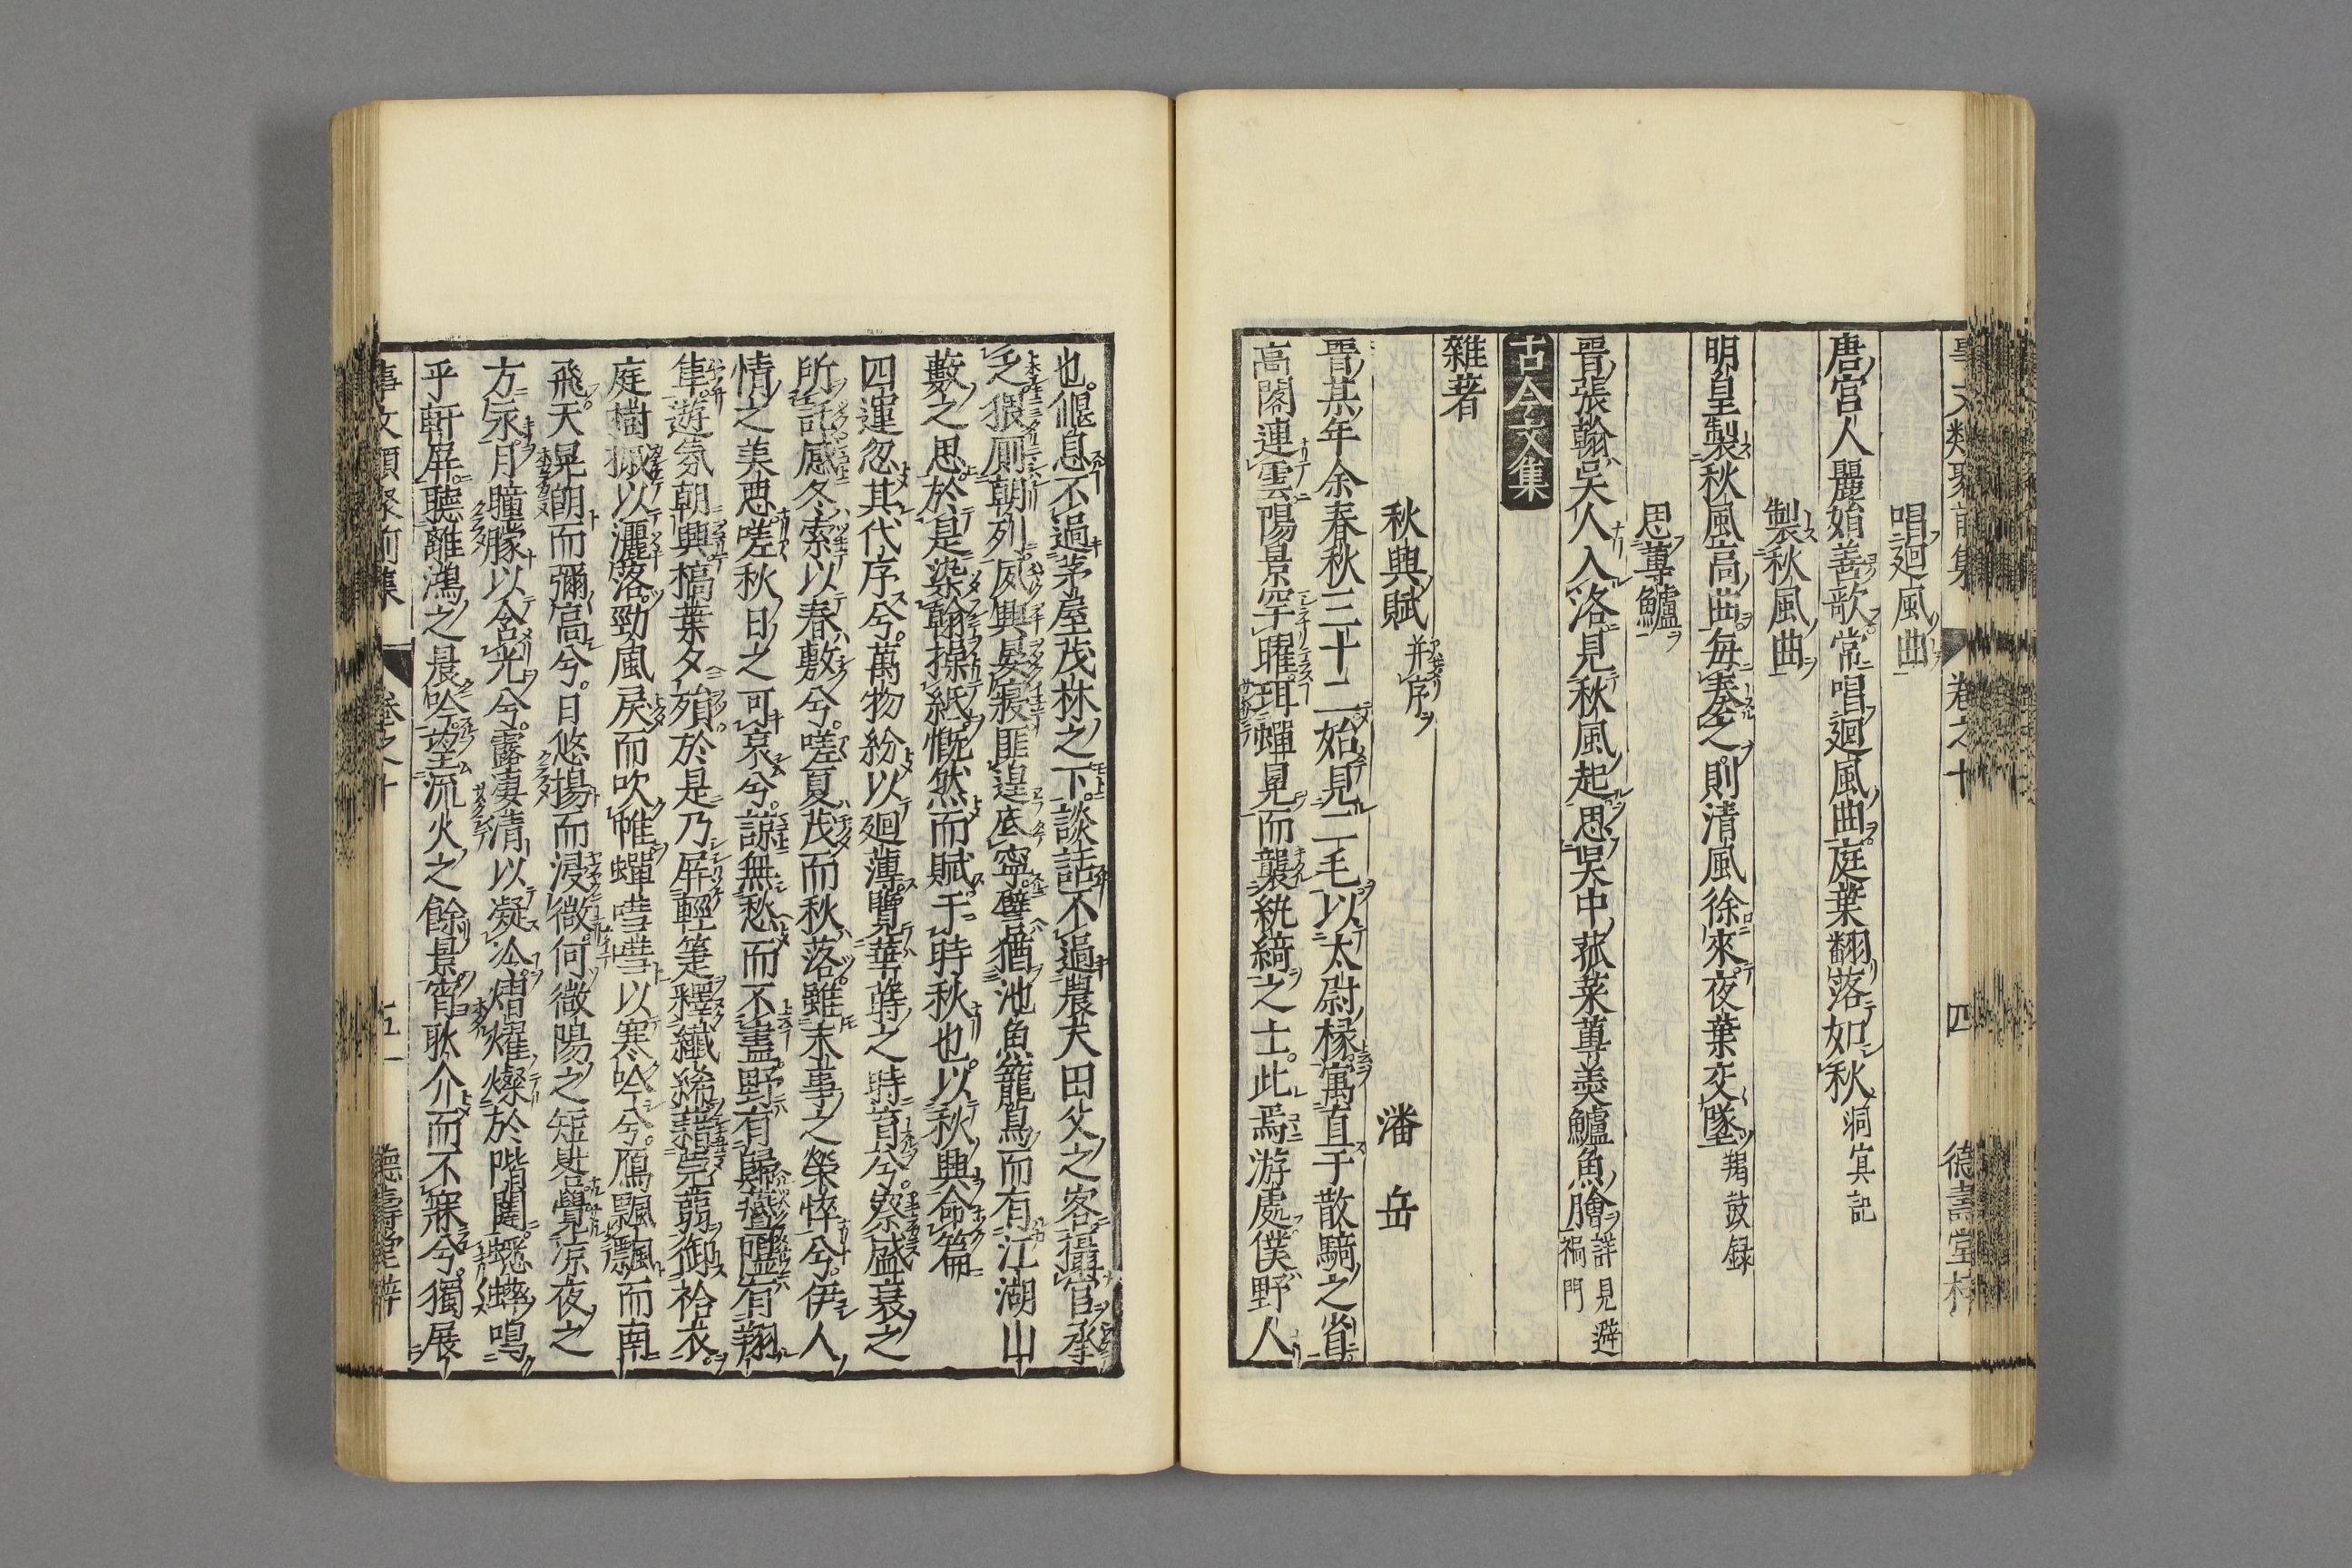 事文類聚前集 卷之十 四 德壽堂梓
唱迴風曲
唐宮人麗娟善歌常唱迴風曲庭葉翻落如秋洞冥記
製秋風曲
明皇製秋風高曲每奏之則清風徐來夜葉交墜羯鼓録
思蓴鱸
晋張翰吳人入洛見秋風起思吳中菰菜蓴羮鱸魚膾詳見避禍門
古今文集
雜著
秋興賦并序 潘岳
晋某年余春秋三十二始見二毛以太尉掾寓直于散騎之省
高閣連雲陽景罕曜珥蟬冕而襲紈綺之士。此焉游處僕野人
也。偃息不過茅屋茂林之下。談話不過農夫田父之客攝官承
乏。猥厠朝列夙興晏寢匪遑底寧譬猶池魚籠鳥而有江湖山
藪之思。於是染翰操紙。慨然而賦于時秋也。以秋興命篇
四運忽其代序兮。萬物紛以廻薄。覽華蒔之時育兮。察盛衰之
所託。感冬索以春敷兮。嗟夏茂而秋落。雖末事之榮悴兮。伊人
情之美惡。嗟秋日之可哀兮。諒無愁而不盡。野有歸燕隰有翔
隼。遊氛朝興槁葉夕殞。於是乃屏輕箑釋纖絺藉莞蒻御袷衣。
庭樹摵以灑落。勁風戾而吹帷。蟬嘒嘒以寒吟兮。鴈飄飄而南
飛。天晃朗而彌高兮。日悠揚而浸微。何微陽之短晷。覺涼夜之
方永。月朣朦以含光兮。露凄清以凝冷。熠燿燦於階闥。蟋蟀鳴
乎軒屏。聽離鴻之晨吟。望流火之餘景。宵耿介而不寐兮。獨展
事文類聚前集 卷之十 五 德壽堂梓